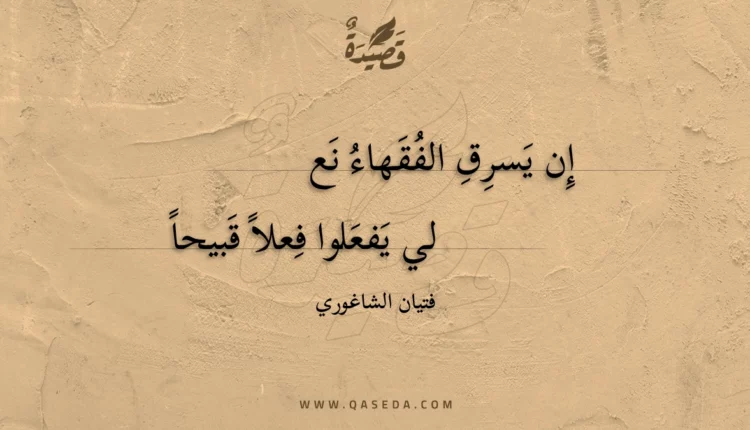 قَصِيدَةٌ
إِن يَسرِقِ الفُقَهاءُ نَع
لي يَفعَلوا فِعلاً قَبيحاً
فتيان الشاغوري
WWW.QASEDA.COM